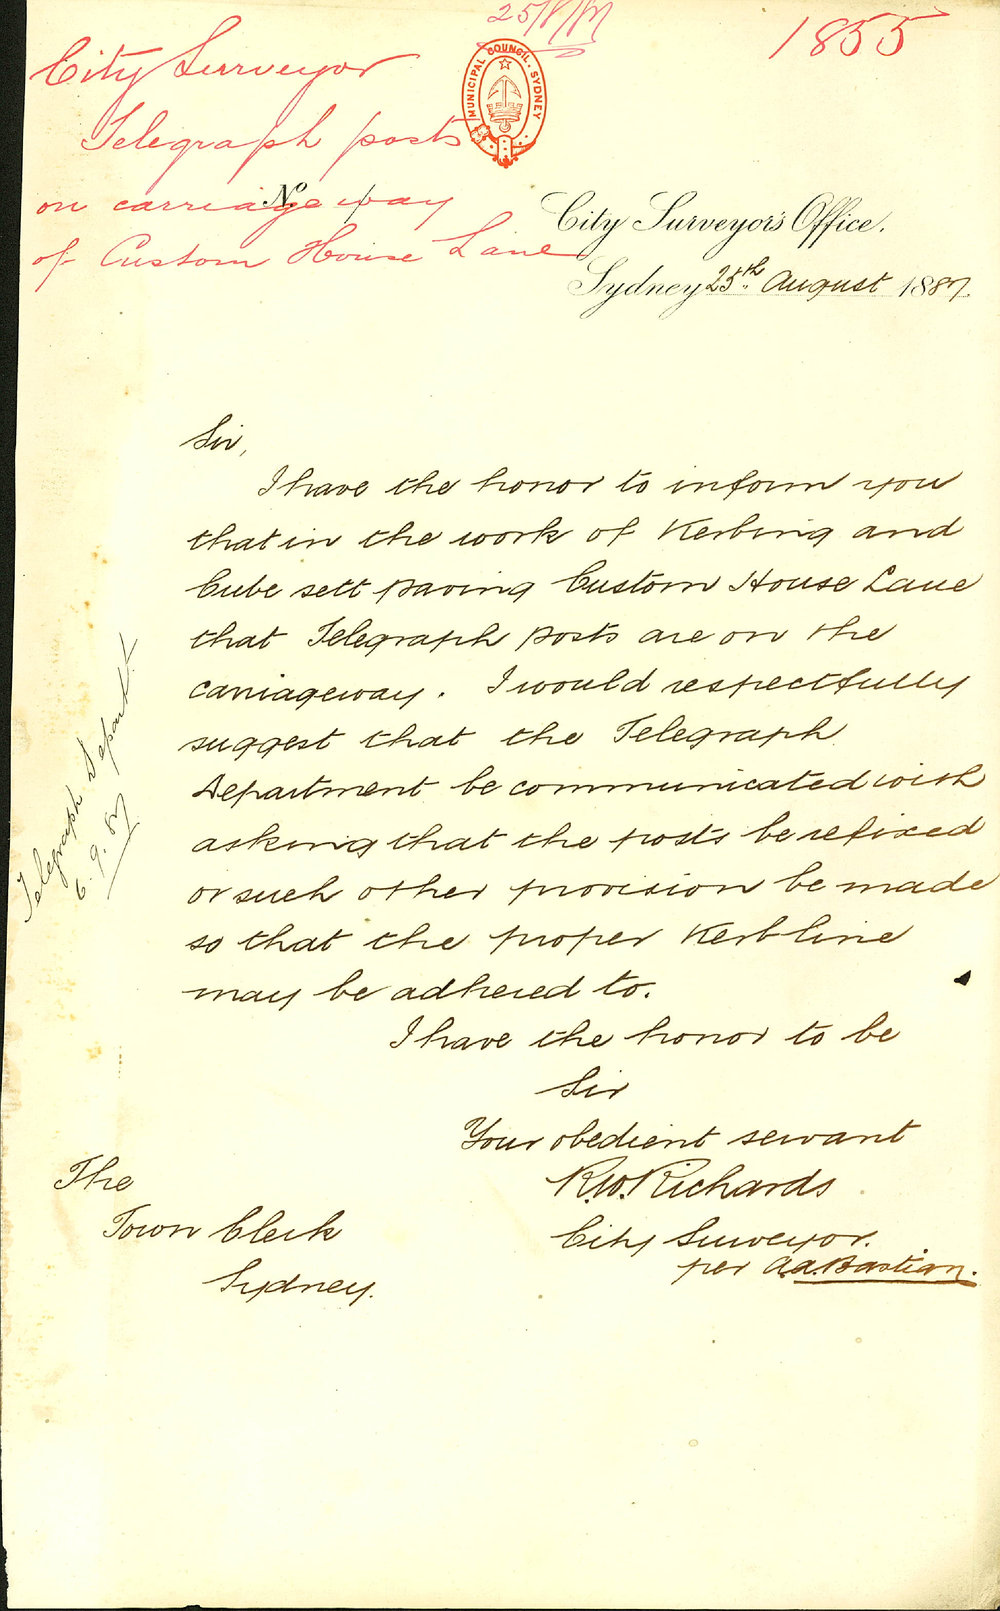 25/8/87
1855
City Surveyor
Telegraph posts
on carriage way
of Custom House Lane
MUNICIPAL COUNCIL. SYDNEY
No.
City Surveyor's Office.
Sydney 25th August 1887.
Sir,
I have the honor to inform you
that in the work of Kerbing and
Cube sett paving Custom House Lane
that Telegraph posts are on the
carriageway. I would respectfully
suggest that the Telegraph
Department be communicated with
asking that the posts be refixed
or such other provision be made
so that the proper Kerbline
may be adhered to.
I have the honor to be
Sir
Your obedient servant
R.W. Richards
City Surveyor.
per A.A. Bastian.
The
Town Clerk
Sydney.
Telegraph Departt.
6.9.87